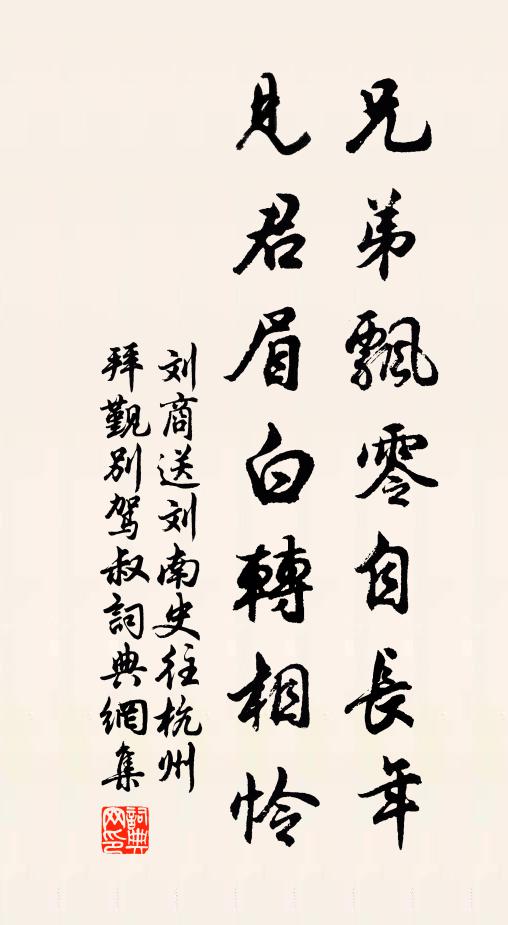 兄弟飄零自長年
見君眉白轉相怜
刘商送刘南史往杭州
拜觐别驾叔詞典網集
詞典网印